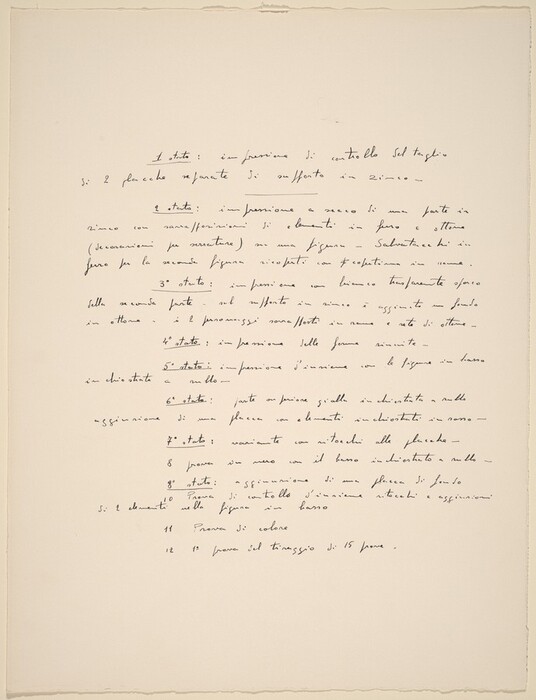 1 stato : impressione di controllo del taglio
di 2 placche separate di supporto in zinco —
2 stato : impressione a secco di una parte in
zinco con sovrapposizioni di elementi in ferro e ottone
(decorazioni per serrature) su una figura — Salvatacchi in
ferro per la seconda figura ricoperti con copertina in rame .
3° stato : impressione con bianco trasparente opaco
della seconda parte . sul supporto in zinco è aggiunto un fondo
in ottone . i 2 personaggi sovrapposti in rame e rete di ottone —
4° stato : impressione delle forme riunite —
5° stato : impressione d'insieme con la figura in basso
inchiostrata a rullo —
6° stato : parte superiore gialla inchiostrata a rullo
aggiunzione di una placca con elementi inchiostrati in rosso —
7° stato : variante con ritocchi alle placche —
8 prova in nero con il basso inchiostrato a rullo —
8° stato : aggiunzione di una placca di fondo
10 Prova di controllo d'insieme ritocchi e aggiunzioni
di 2 elementi nella figura in basso
11 Prova di colore
12 1ª prova del tiraggio di 15 prove .